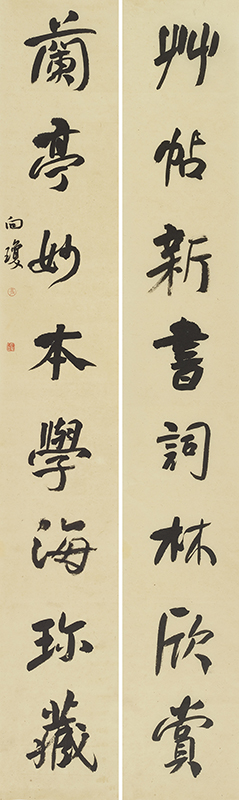 艸帖新書詞林欣賞
蘭亭妙本學海珎藏
向瓊